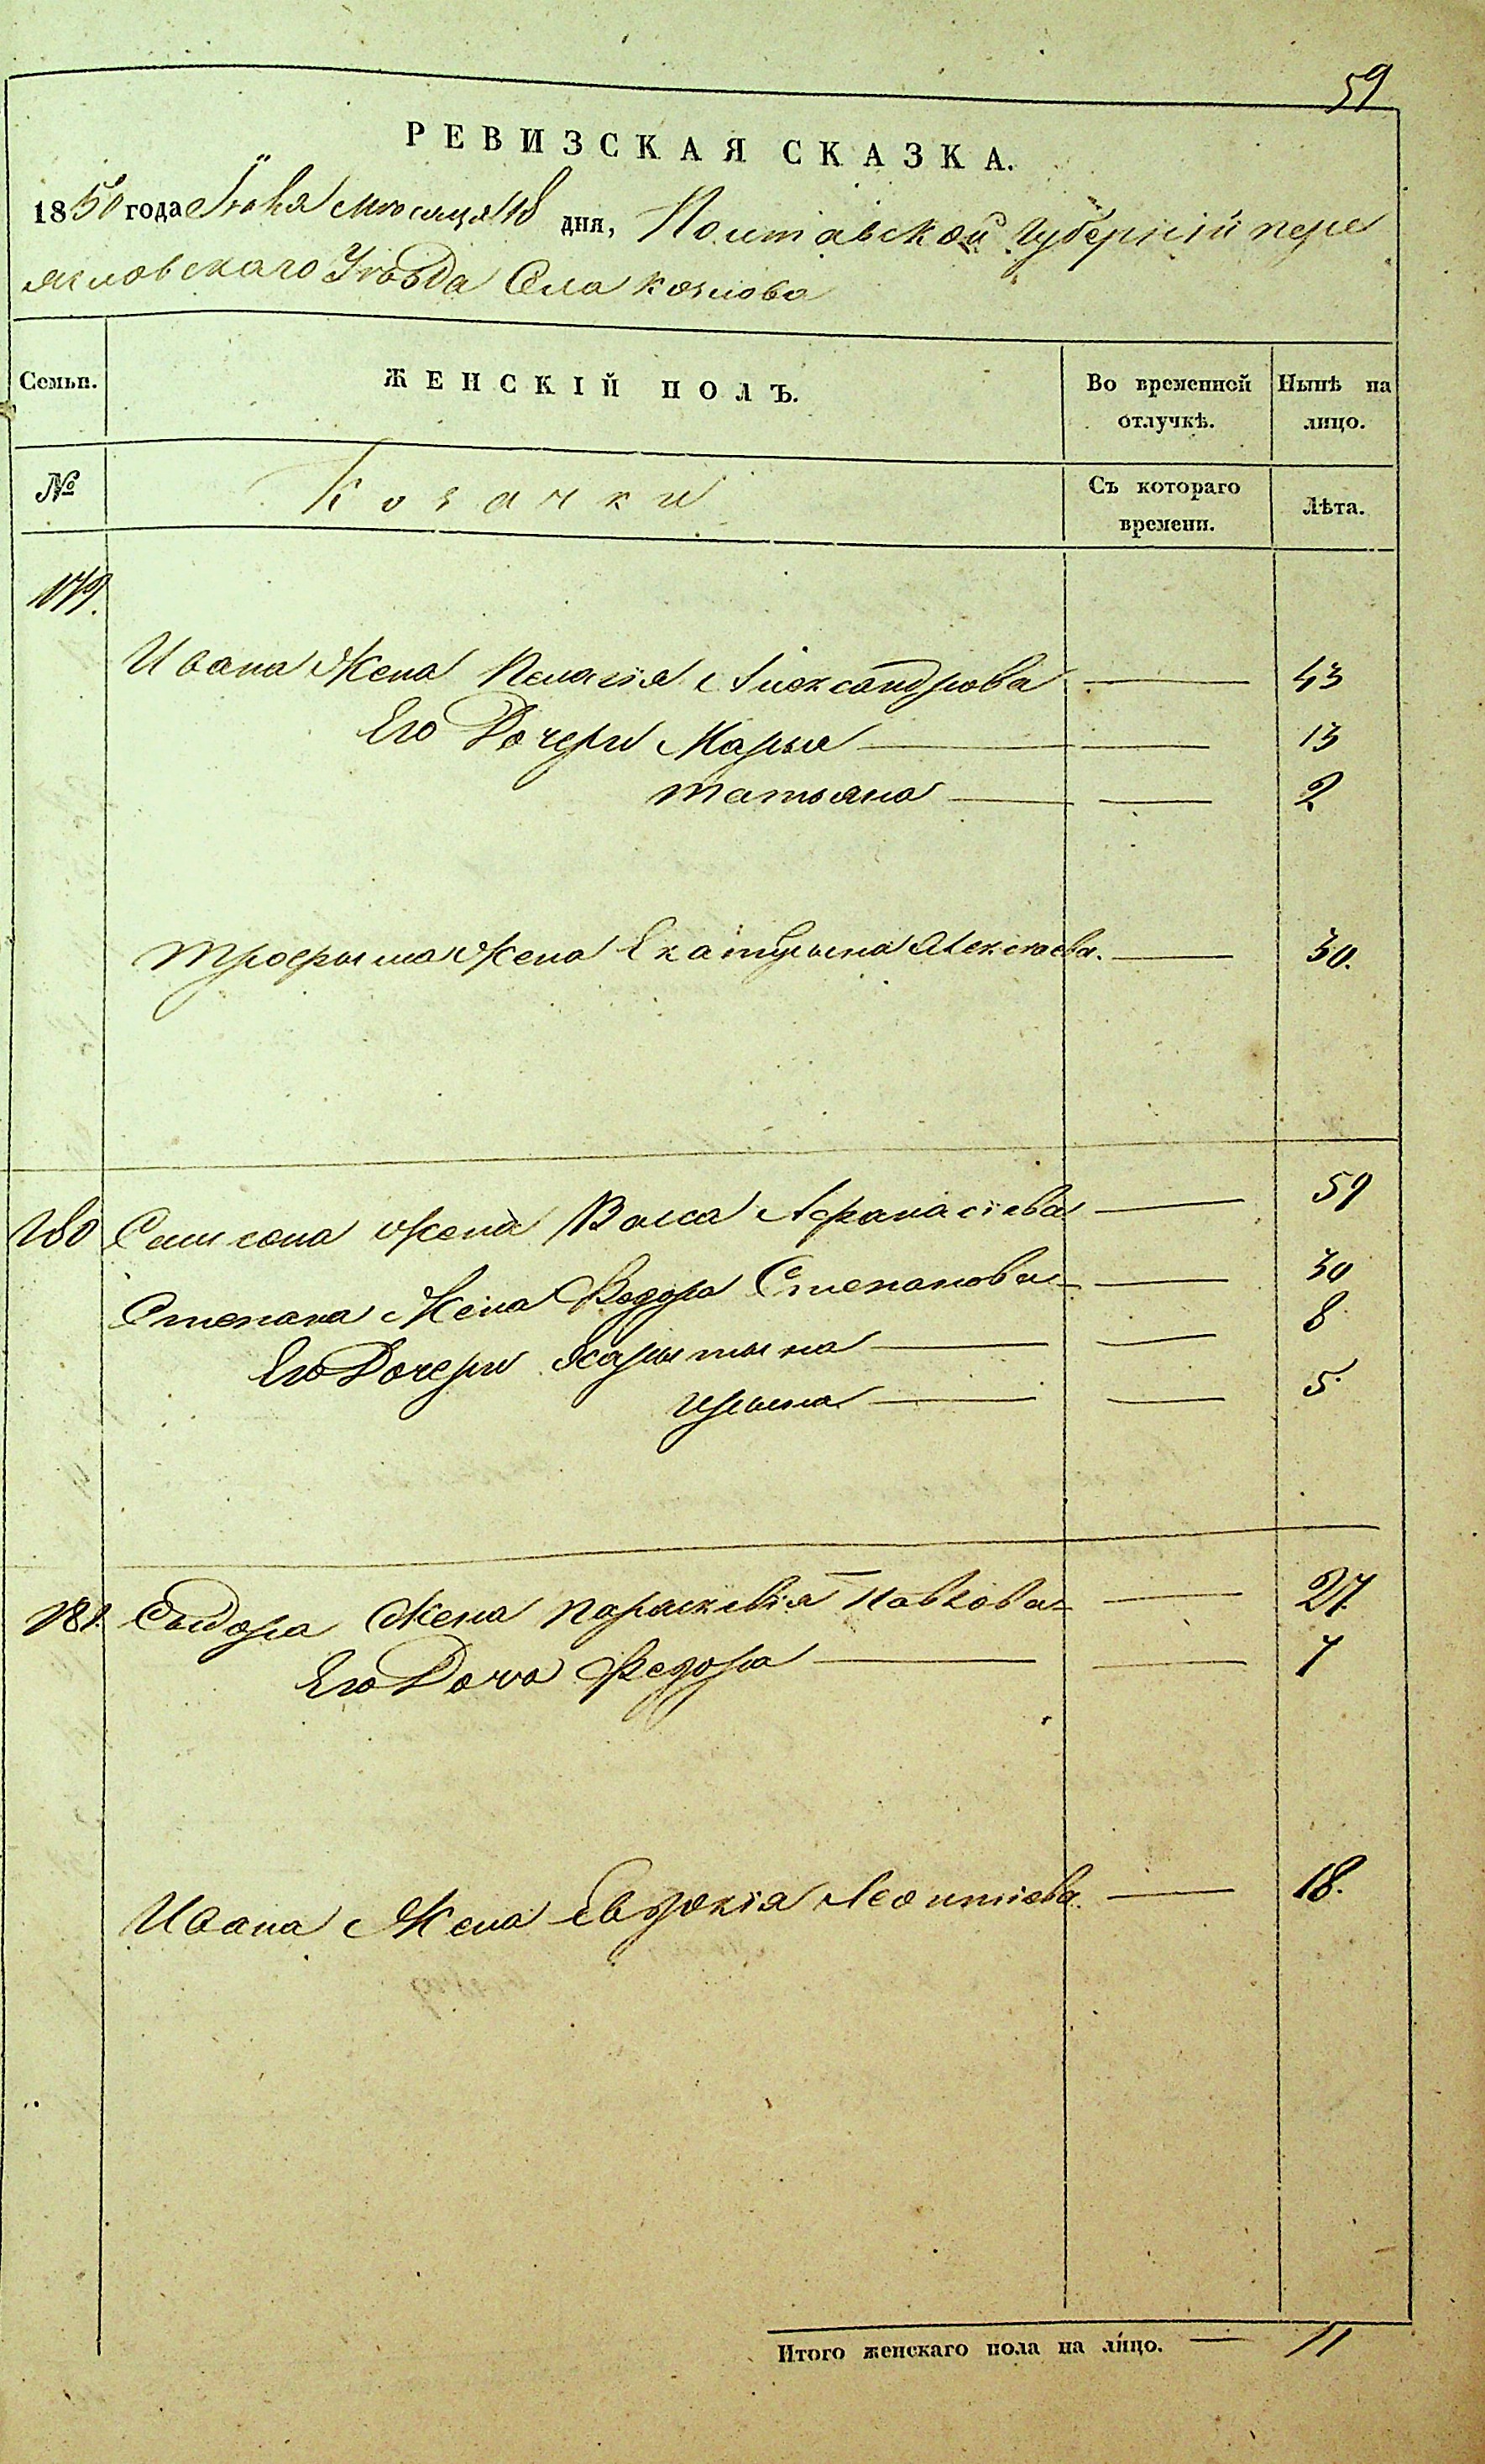 59
РЕВИЗСКАЯ СКАЗКА.
1850 года Іюня месяця 18 дня, Полтавской Губерніи пере
яславскаго Уѣзда Села козлова
Семьи. ЖЕНСКІЙ ПОЛЪ. Во временной отлучкѣ. Нынѣ на лицо.
№ Козачки Съ котораго времени. Лѣта.
179.
Ивана Жена Пелагія Александрова — 43
Его Дочери Марья — 13
татьяна — 2
трофыма Жена Екатерына Алексѣева. — 30.
180 Самсона жена Васса Афанасіева — 59
Степана Жена Федора Степанова — 30
Его Дочери Харытына — 8
Ирына — 5.
181. Сыдора Жена параскевія Павлова — 27
Его Дочь Федора — 7
Ивана Жена Евдокія Леонтіева — 18.
Итого женскаго пола на лицо. — 11